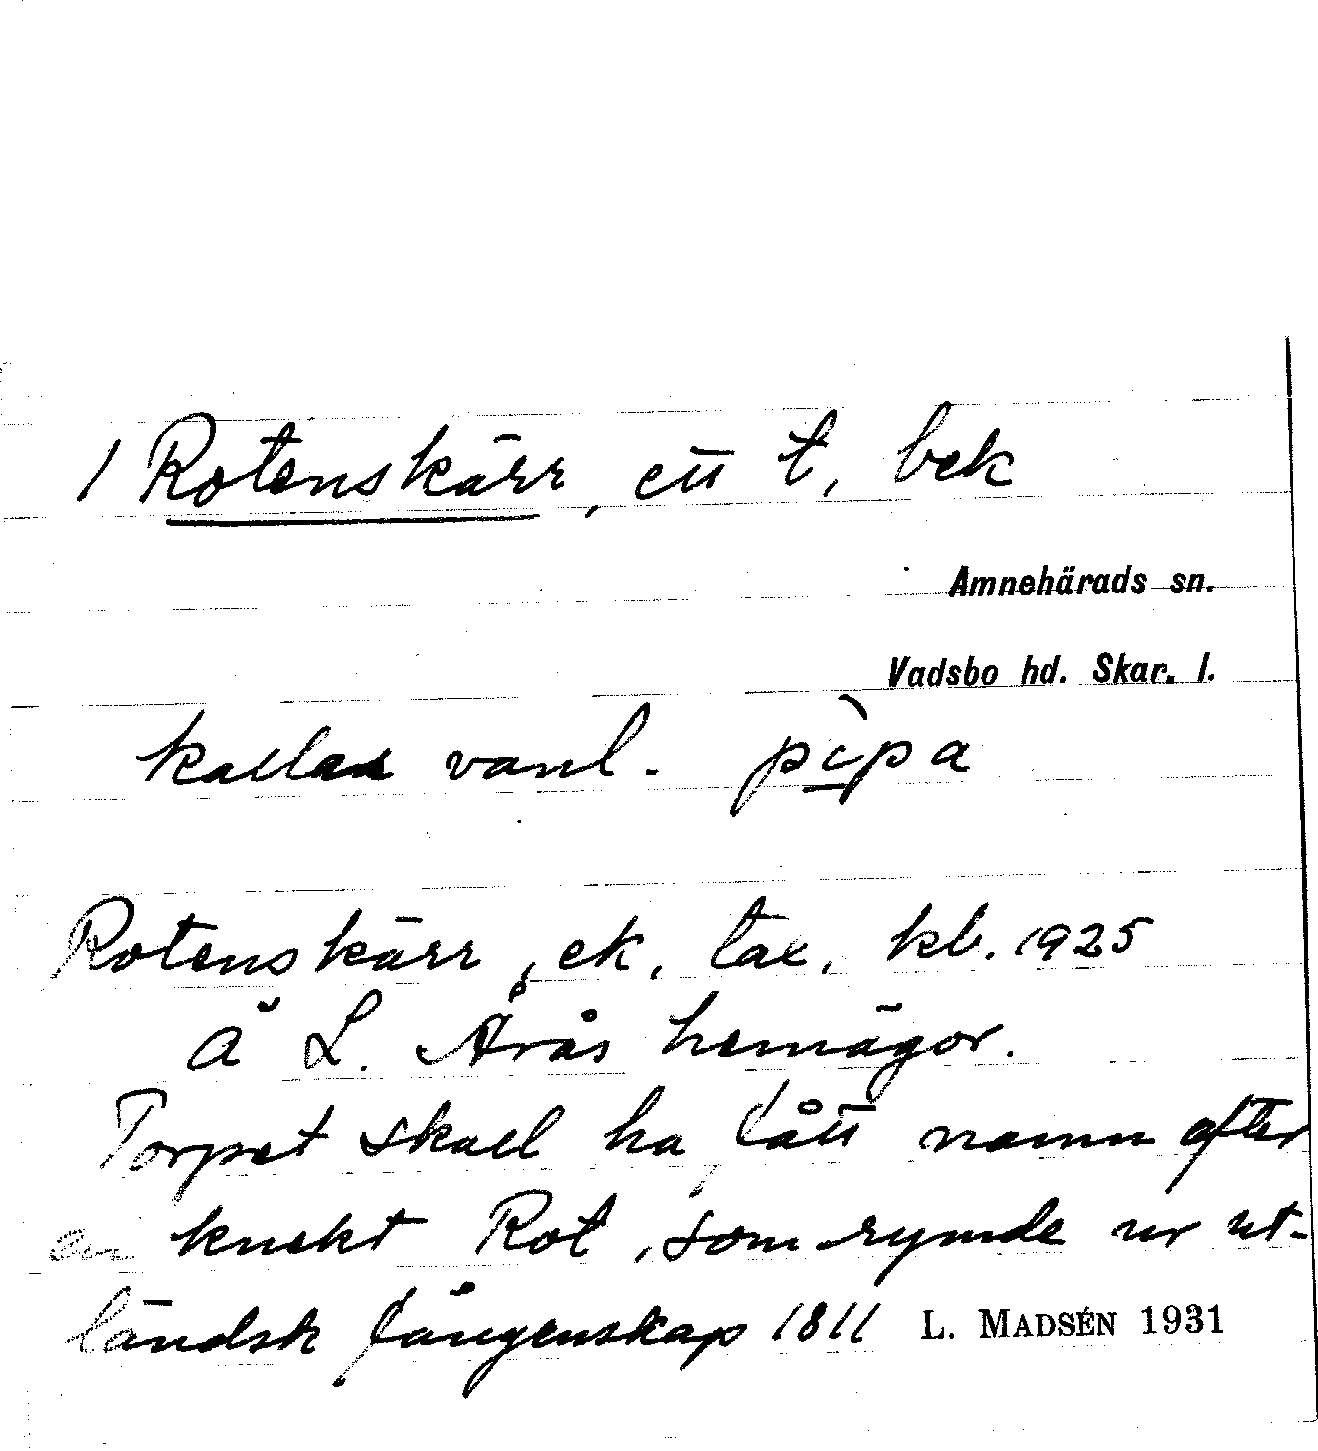 1 Rotenskärr, ett t, bek
Amnehärads sn.
Vadsbo hd. Skar. l.
kallas vanl. pìpa
Rotenskärr, ek. tax. kb. 1925
Å L. Årås hemägor.
Torpet skall ha fått namn efter
en knekt Rot, som rymde ur ut-
ländsk fångenskap 1811 L. MADSÉN 1931